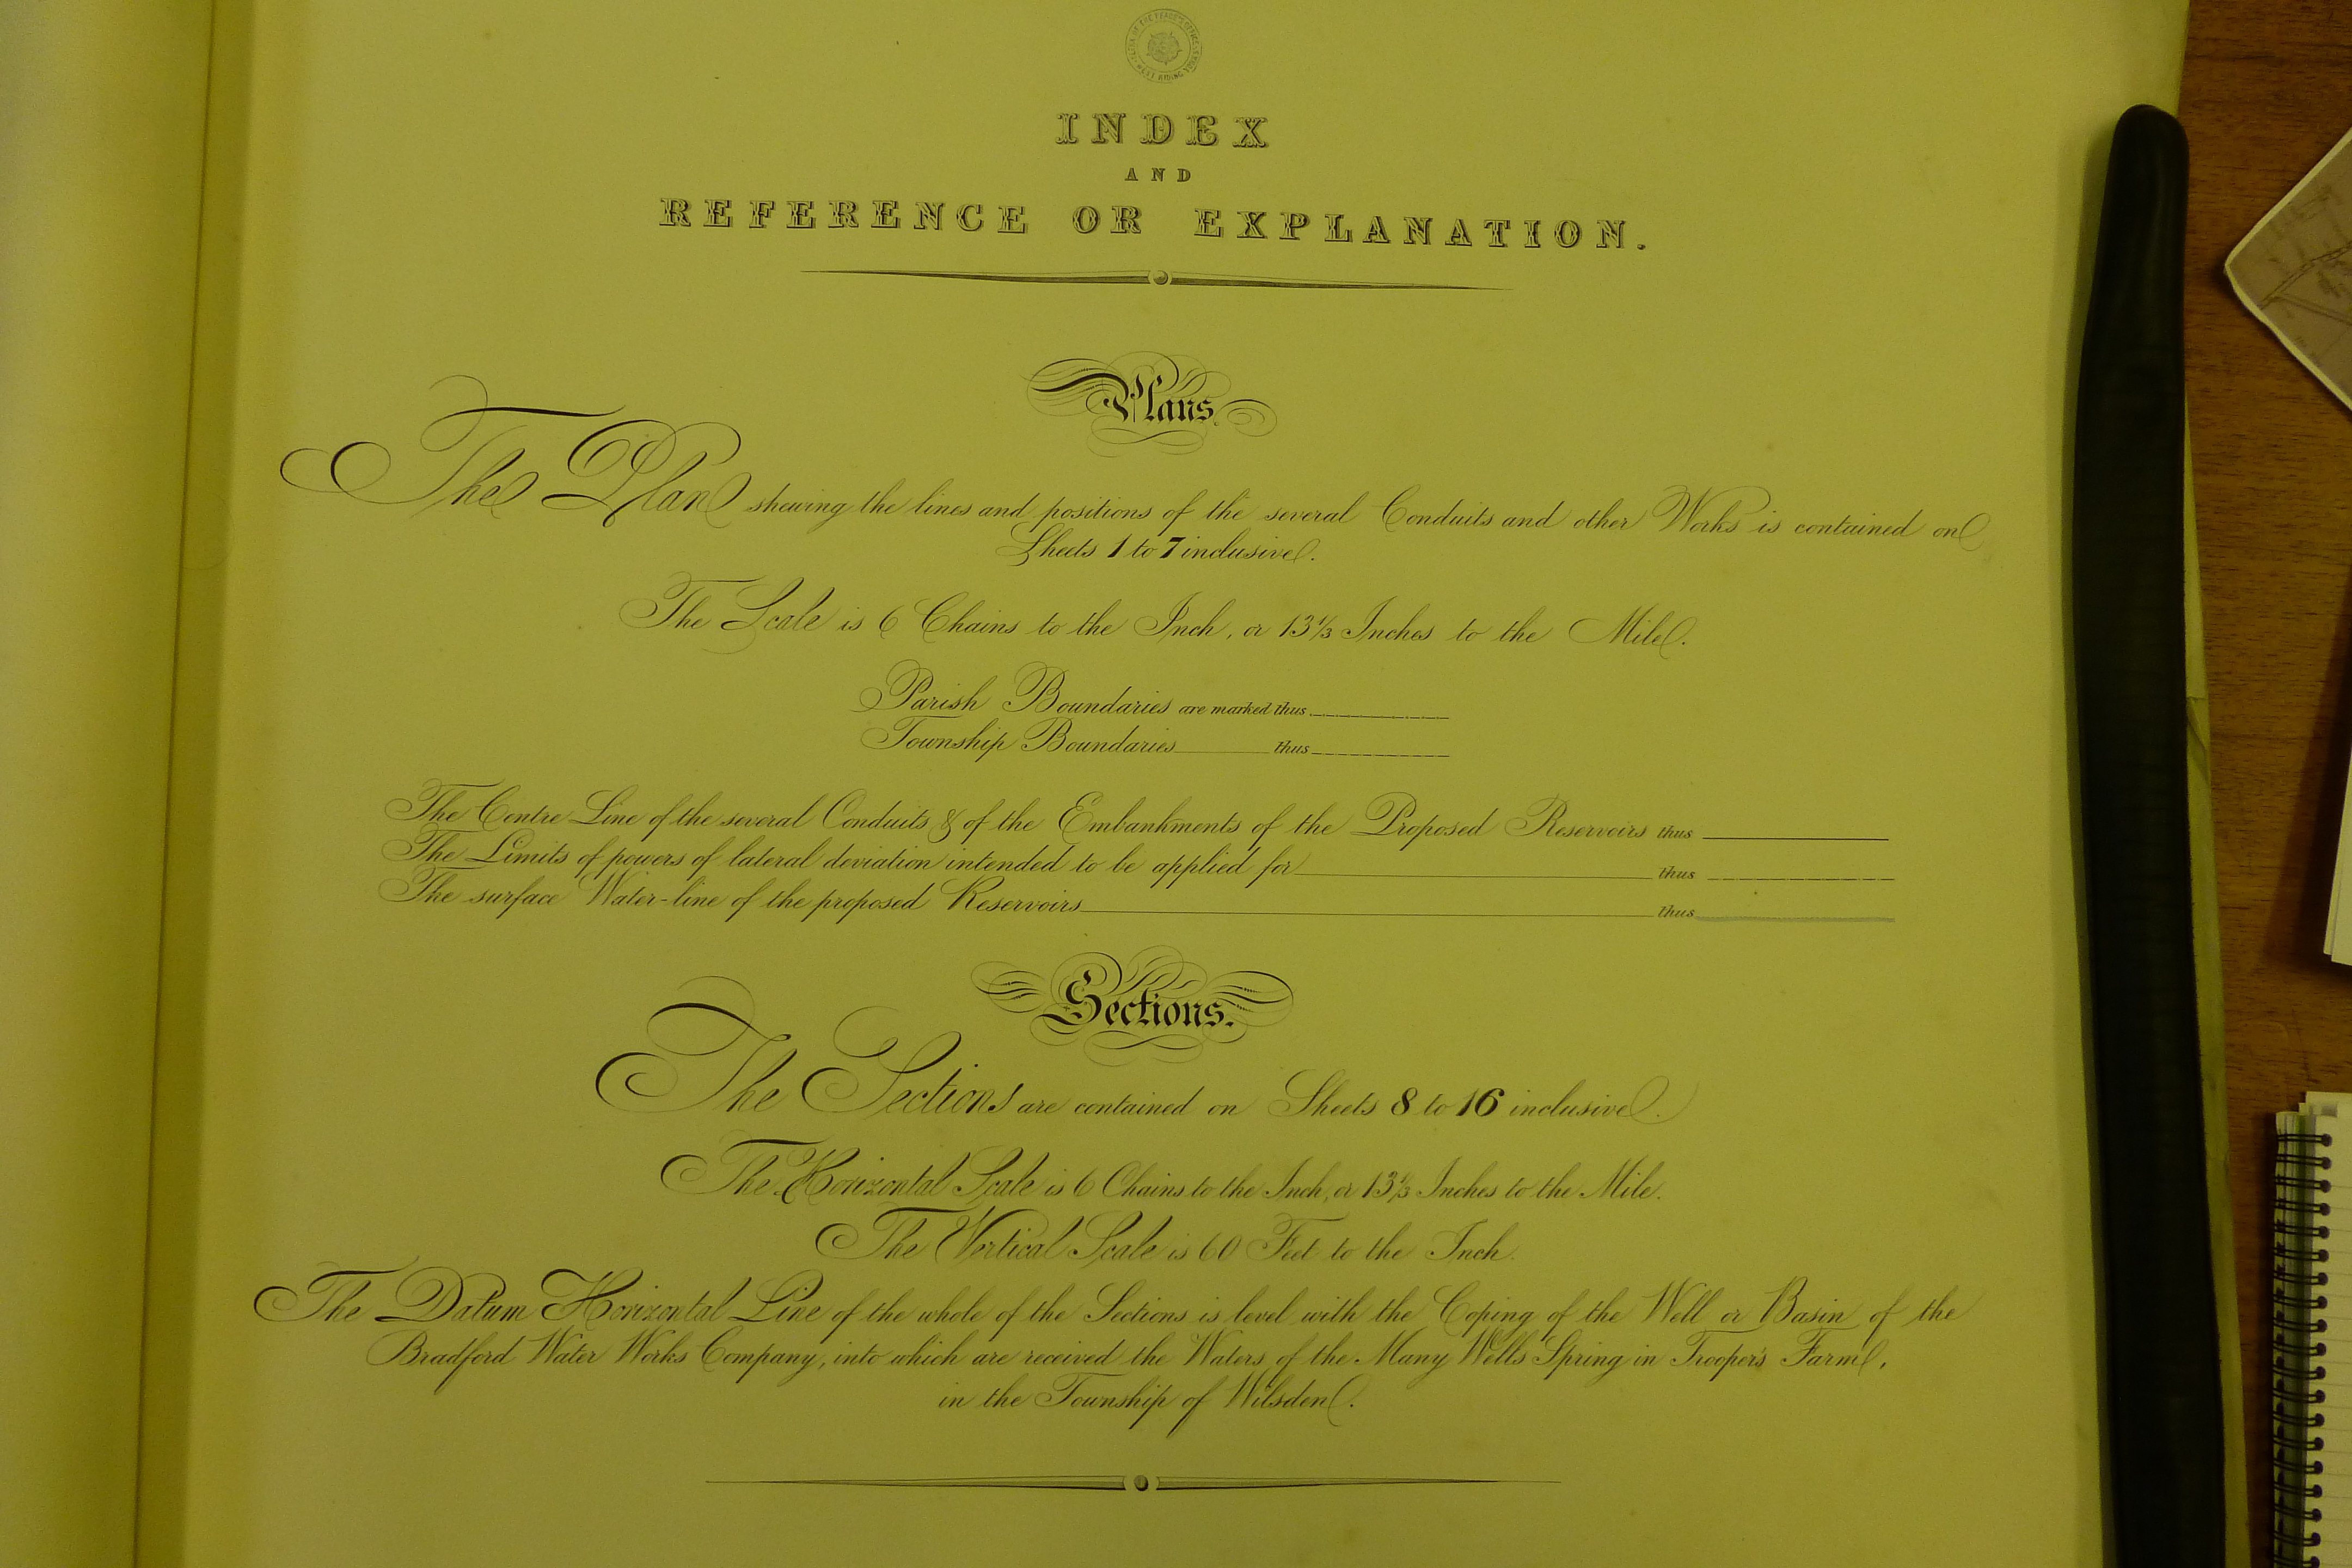 INDEX
AND
REFERENCE OR EXPLANATION.
Plans.
The Plan shewing the lines and positions of the several Conduits and other Works is contained on
Sheets 1 to 7 inclusive.
The Scale is 6 Chains to the Inch, or 13 1/3 Inches to the Mile.
Parish Boundaries are marked thus
Township Boundaries thus
The Centre Line of the several Conduits & of the Embankments of the Proposed Reservoirs thus
The Limits of powers of lateral deviation intended to be applied for thus
The surface Water-line of the proposed Reservoirs thus
Sections.
The Sections are contained on Sheets 8 to 16 inclusive.
The Horizontal Scale is 6 Chains to the Inch, or 13 1/3 Inches to the Mile.
The Vertical Scale is 60 Feet to the Inch.
The Datum Horizontal Line of the whole of the Sections is level with the Coping of the Well or Basin of the
Bradford Water Works Company, into which are received the Waters of the Many Wells Spring in Trooper's Farm,
in the Township of Wilsden.